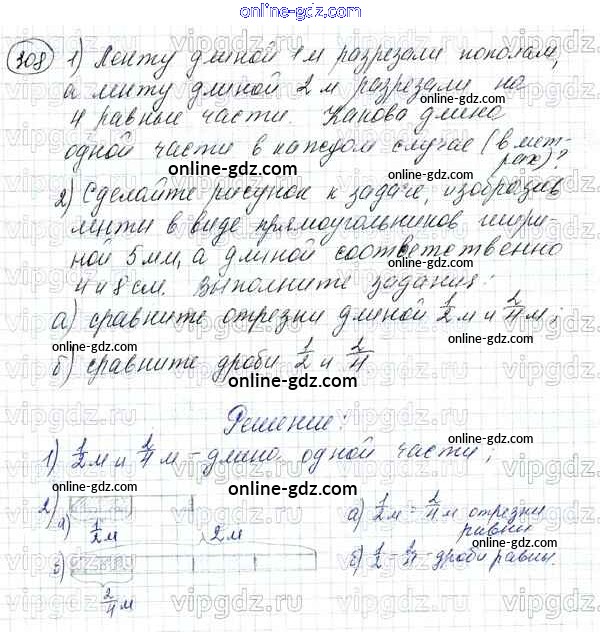 308 1) Ленту длиной 1 м разрезали пополам,
а ленту длиной 2 м разрезали на
4 равные части. Какова длина
одной части в каждом случае (в мет-
рах)?
2) Сделайте рисунок к задаче, изобразив
ленты в виде прямоугольников шири-
ной 5 мм, а длиной соответственно
4 и 8 см. Выполните задания:
а) сравните отрезки длиной 1/2 м и 2/4 м;
б) сравните дроби 1/2 и 2/4
Решение:
1) 1/2 м и 2/4 м - длина одной части;
2)
а) 1/2 м
2 м
б)
2/4 м
а) 1/2 м = 2/4 м отрезки
равны
б) 1/2 = 2/4 - дроби равны.
online-gdz.com
vipgdz.com
vipgdz.ru